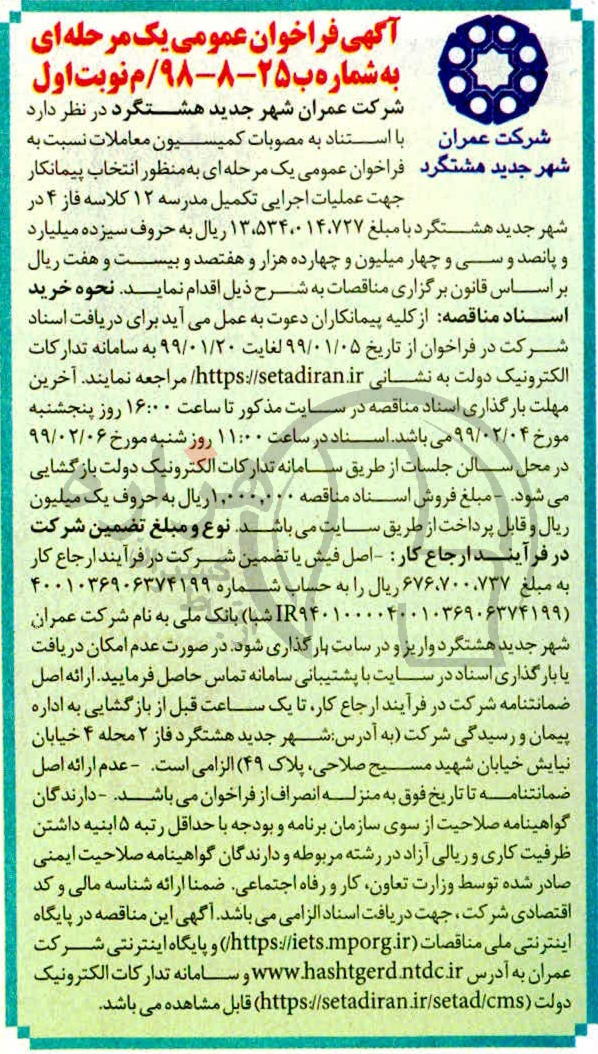 آگهی فراخوان عمومی یک مرحله ای
به شماره ب ۲۵-۸-۹۸/م نوبت اول
شرکت عمران
شهر جدید هشتگرد
شرکت عمران شهر جدید هشتگرد در نظر دارد
با استناد به مصوبات کمیسیون معاملات نسبت به
فراخوان عمومی یک مرحله ای به‌منظور انتخاب پیمانکار
جهت عملیات اجرایی تکمیل مدرسه ۱۲ کلاسه فاز ۴ در
شهر جدید هشتگرد با مبلغ ۱۳،۵۳۴،۰۱۴،۷۲۷ ریال به حروف سیزده میلیارد
و پانصد و سی و چهار میلیون و چهارده هزار و هفتصد و بیست و هفت ریال
بر اساس قانون برگزاری مناقصات به شرح ذیل اقدام نماید. نحوه خرید
اسناد مناقصه: از کلیه پیمانکاران دعوت به عمل می آید برای دریافت اسناد
شرکت در فراخوان از تاریخ ۹۹/۰۱/۰۵ لغایت ۹۹/۰۱/۲۰ به سامانه تدارکات
الکترونیک دولت به نشانی https://setadiran.ir/ مراجعه نمایند. آخرین
مهلت بارگذاری اسناد مناقصه در سایت مذکور تا ساعت ۱۶:۰۰ روز پنجشنبه
مورخ ۹۹/۰۲/۰۴ می باشد. اسناد در ساعت ۱۱:۰۰ روز شنبه مورخ ۹۹/۰۲/۰۶
در محل سالن جلسات از طریق سامانه تدارکات الکترونیک دولت بازگشایی
می شود. -مبلغ فروش اسناد مناقصه ۱،۰۰۰،۰۰۰ ریال به حروف یک میلیون
ریال و قابل پرداخت از طریق سایت می باشد. نوع و مبلغ تضمین شرکت
در فرآیند ارجاع کار: -اصل فیش یا تضمین شرکت در فرآیند ارجاع کار
به مبلغ ۶۷۶،۷۰۰،۷۳۷ ریال را به حساب شماره ۴۰۰۱۰۳۶۹۰۶۳۷۴۱۹۹
(IR۹۴۰۱۰۰۰۰۴۰۰۱۰۳۶۹۰۶۳۷۴۱۹۹ شبا) بانک ملی به نام شرکت عمران
شهر جدید هشتگرد واریز و در سایت بارگذاری شود. در صورت عدم امکان دریافت
یا بارگذاری اسناد در سایت با پشتیبانی سامانه تماس حاصل فرمایید. ارائه اصل
ضمانتنامه شرکت در فرآیند ارجاع کار، تا یک ساعت قبل از بازگشایی به اداره
پیمان و رسیدگی شرکت (به آدرس:شهر جدید هشتگرد فاز ۲ محله ۴ خیابان
نیایش خیابان شهید مسیح صلاحی، پلاک ۴۹) الزامی است. -عدم ارائه اصل
ضمانتنامه تا تاریخ فوق به منزله انصراف از فراخوان می باشد. -دارندگان
گواهینامه صلاحیت از سوی سازمان برنامه و بودجه با حداقل رتبه ۵ ابنیه داشتن
ظرفیت کاری و ریالی آزاد در رشته مربوطه و دارندگان گواهینامه صلاحیت ایمنی
صادر شده توسط وزارت تعاون، کار و رفاه اجتماعی. ضمنا ارائه شناسه مالی و کد
اقتصادی شرکت ، جهت دریافت اسناد الزامی می باشد. آگهی این مناقصه در پایگاه
اینترنتی ملی مناقصات (https://iets.mporg.ir/) و پایگاه اینترنتی شرکت
عمران به آدرس www.hashtgerd.ntdc.ir و سامانه تدارکات الکترونیک
دولت (https://setadiran.ir/setad/cms) قابل مشاهده می باشد.